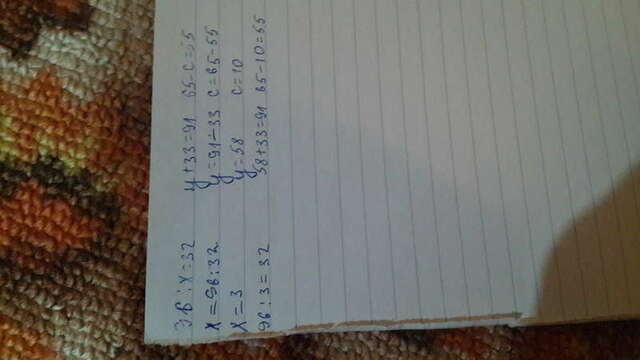 96 : x = 32 y + 33 = 91 65 - c = 55
x = 96 : 32 y = 91 - 33 c = 65 - 55
x = 3 y = 58 c = 10
96 : 3 = 32 58 + 33 = 91 65 - 10 = 55